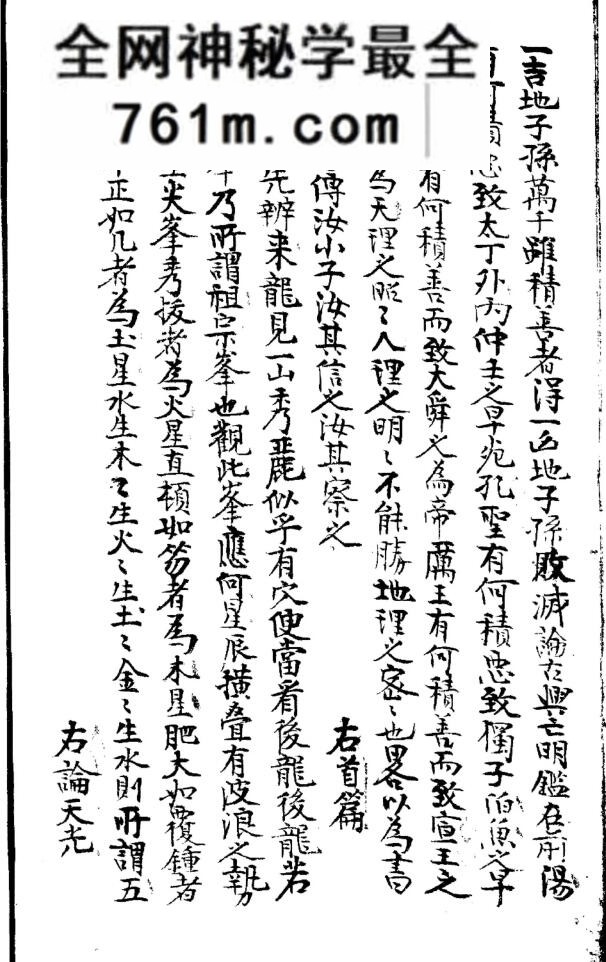 全网神秘学最全
761m.com
一吉地子孫萬千雖積善者得一凶地子孫敗滅論古興亡明鑑在前湯
致太丁外丙仲壬之早死孔聖有何積惡致獨子伯魚之早
有何積善而致大舜之為帝厲王有何積善而致宣王之
為天理之昭〻人理之明〻不能勝地理之密〻也畧以為書
傳汝小子汝其信之汝其察之
右首篇
先辨来龍見一山秀麗似乎有穴便當看後龍後龍若
乃所謂祖宗峯也觀此峯應何星辰橫叠有波浪之勢
尖峯秀拔者為火星直頓如笏者為木星肥大如覆鐘者
正如几者為土星水生木〻生火〻生土〻金〻生水則所謂五
右論天光